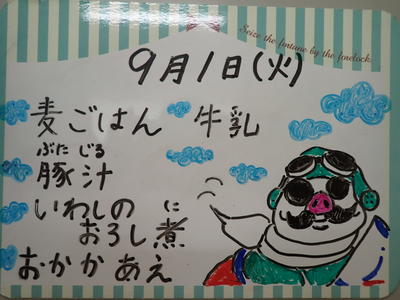 Seize the fortune by the forelock
9月1日(火)
麦ごはん 牛乳
ぶた じる
豚汁
いわしの に
おろし煮
おかかあえ